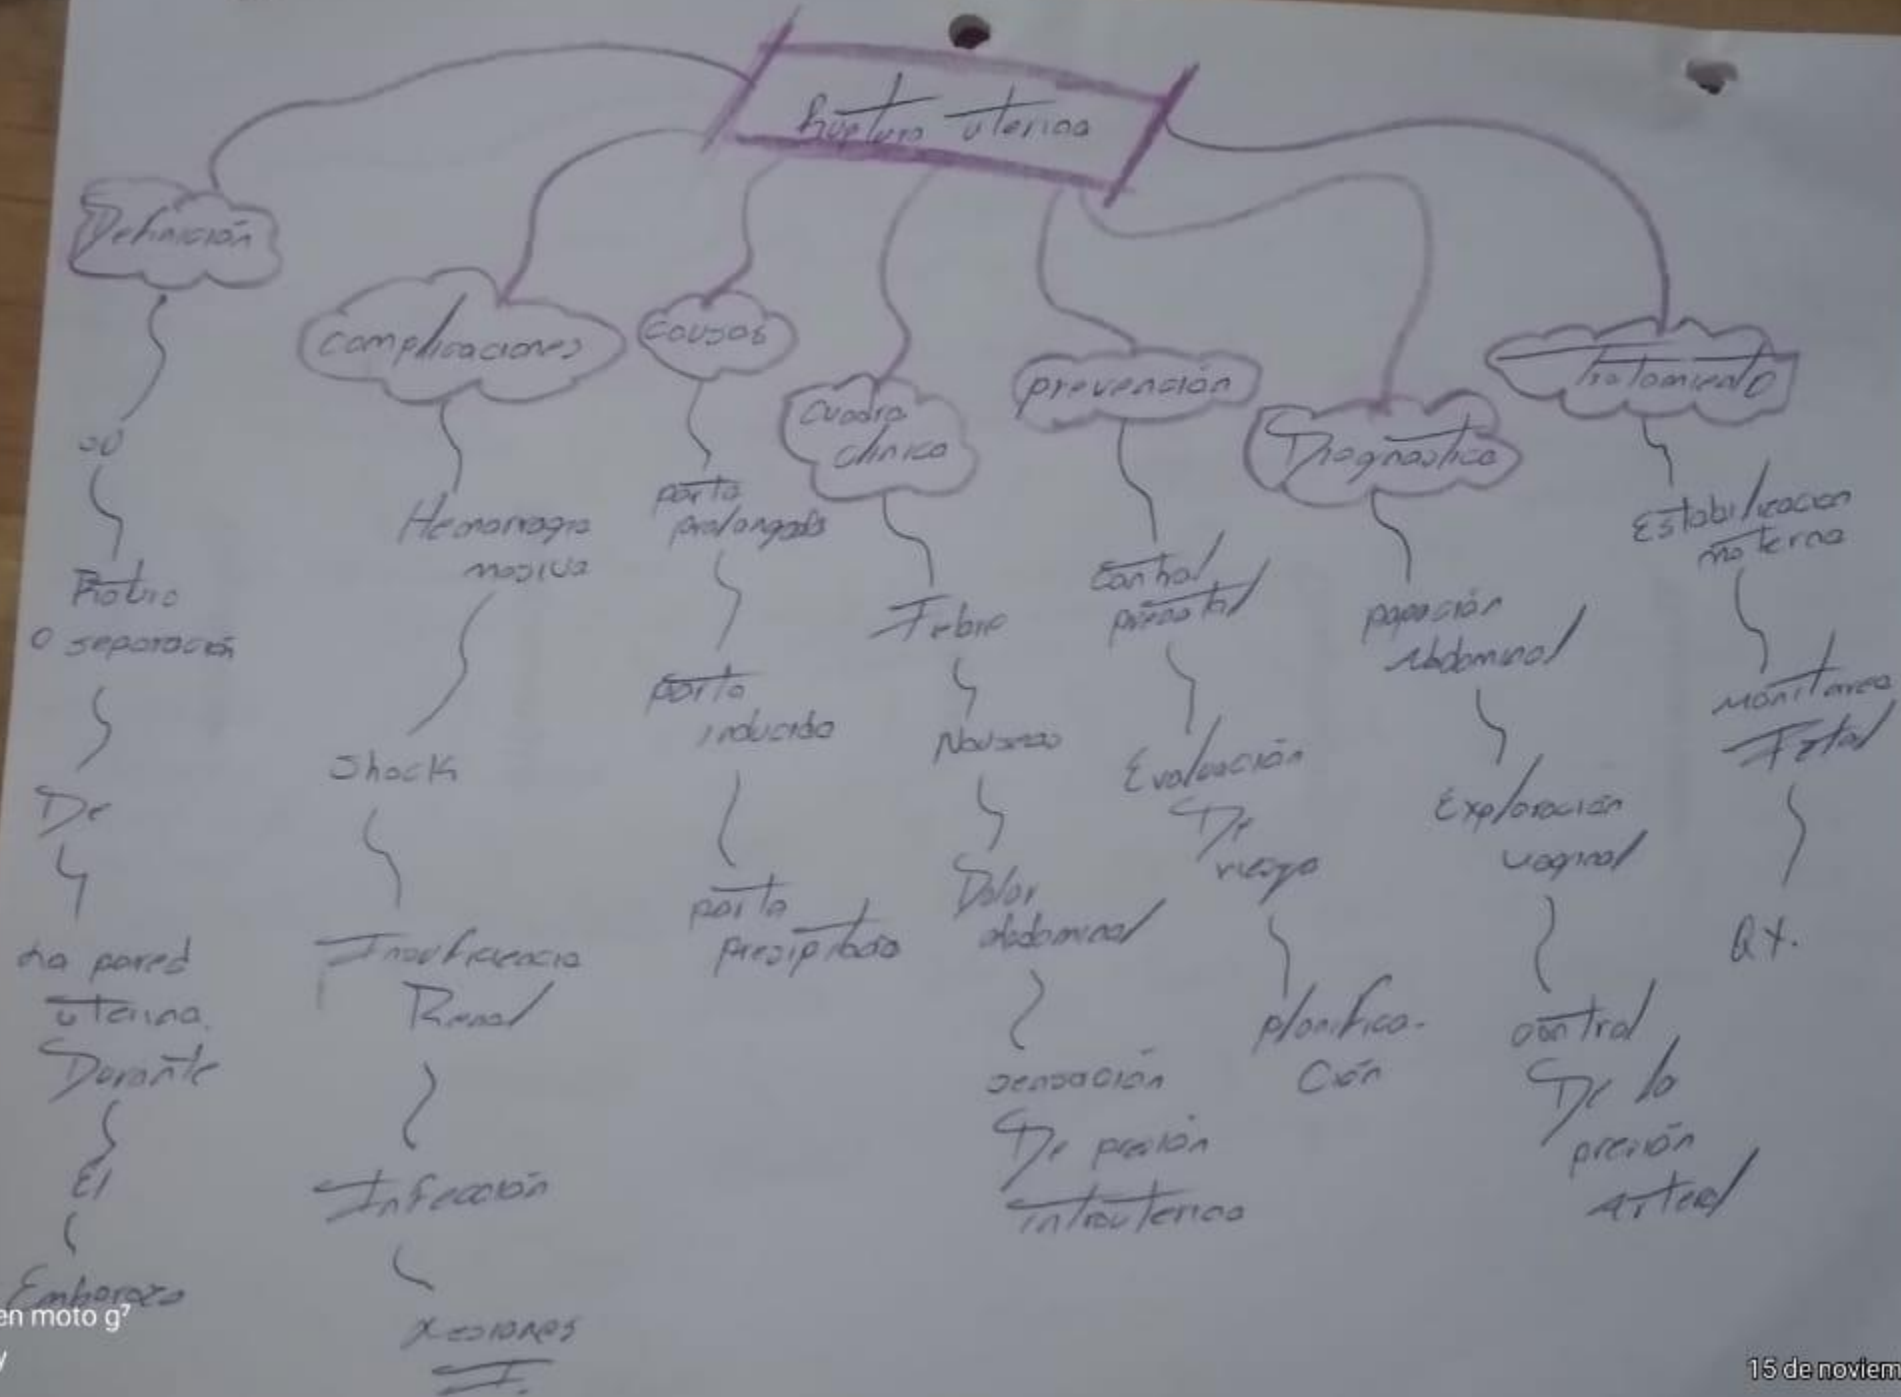 Ruptura uterina
Definición
es
Rotura
o separación
De
La pared
uterina.
Durante
El
Embarazo
Complicaciones
Hemorragia
masiva
Shock
Insuficiencia
Renal
Infección
Lesiones
I.
Causas
parto
prolongado
parto
inducido
parto
precipitado
Cuadro
clínico
Febre
Nauseas
Dolor
abdominal
sensación
De preción
intrauterina
prevención
Control
prenatal
Evaluación
De
riesgo
planifica-
ción
Diagnostico
papación
Abdominal
Exploración
vaginal
control
De la
preción
Arterial
Tratamiento
Estabilizacion
materna
Monitoreo
Fetal
Qx.
en moto g⁷
y
15 de noviem